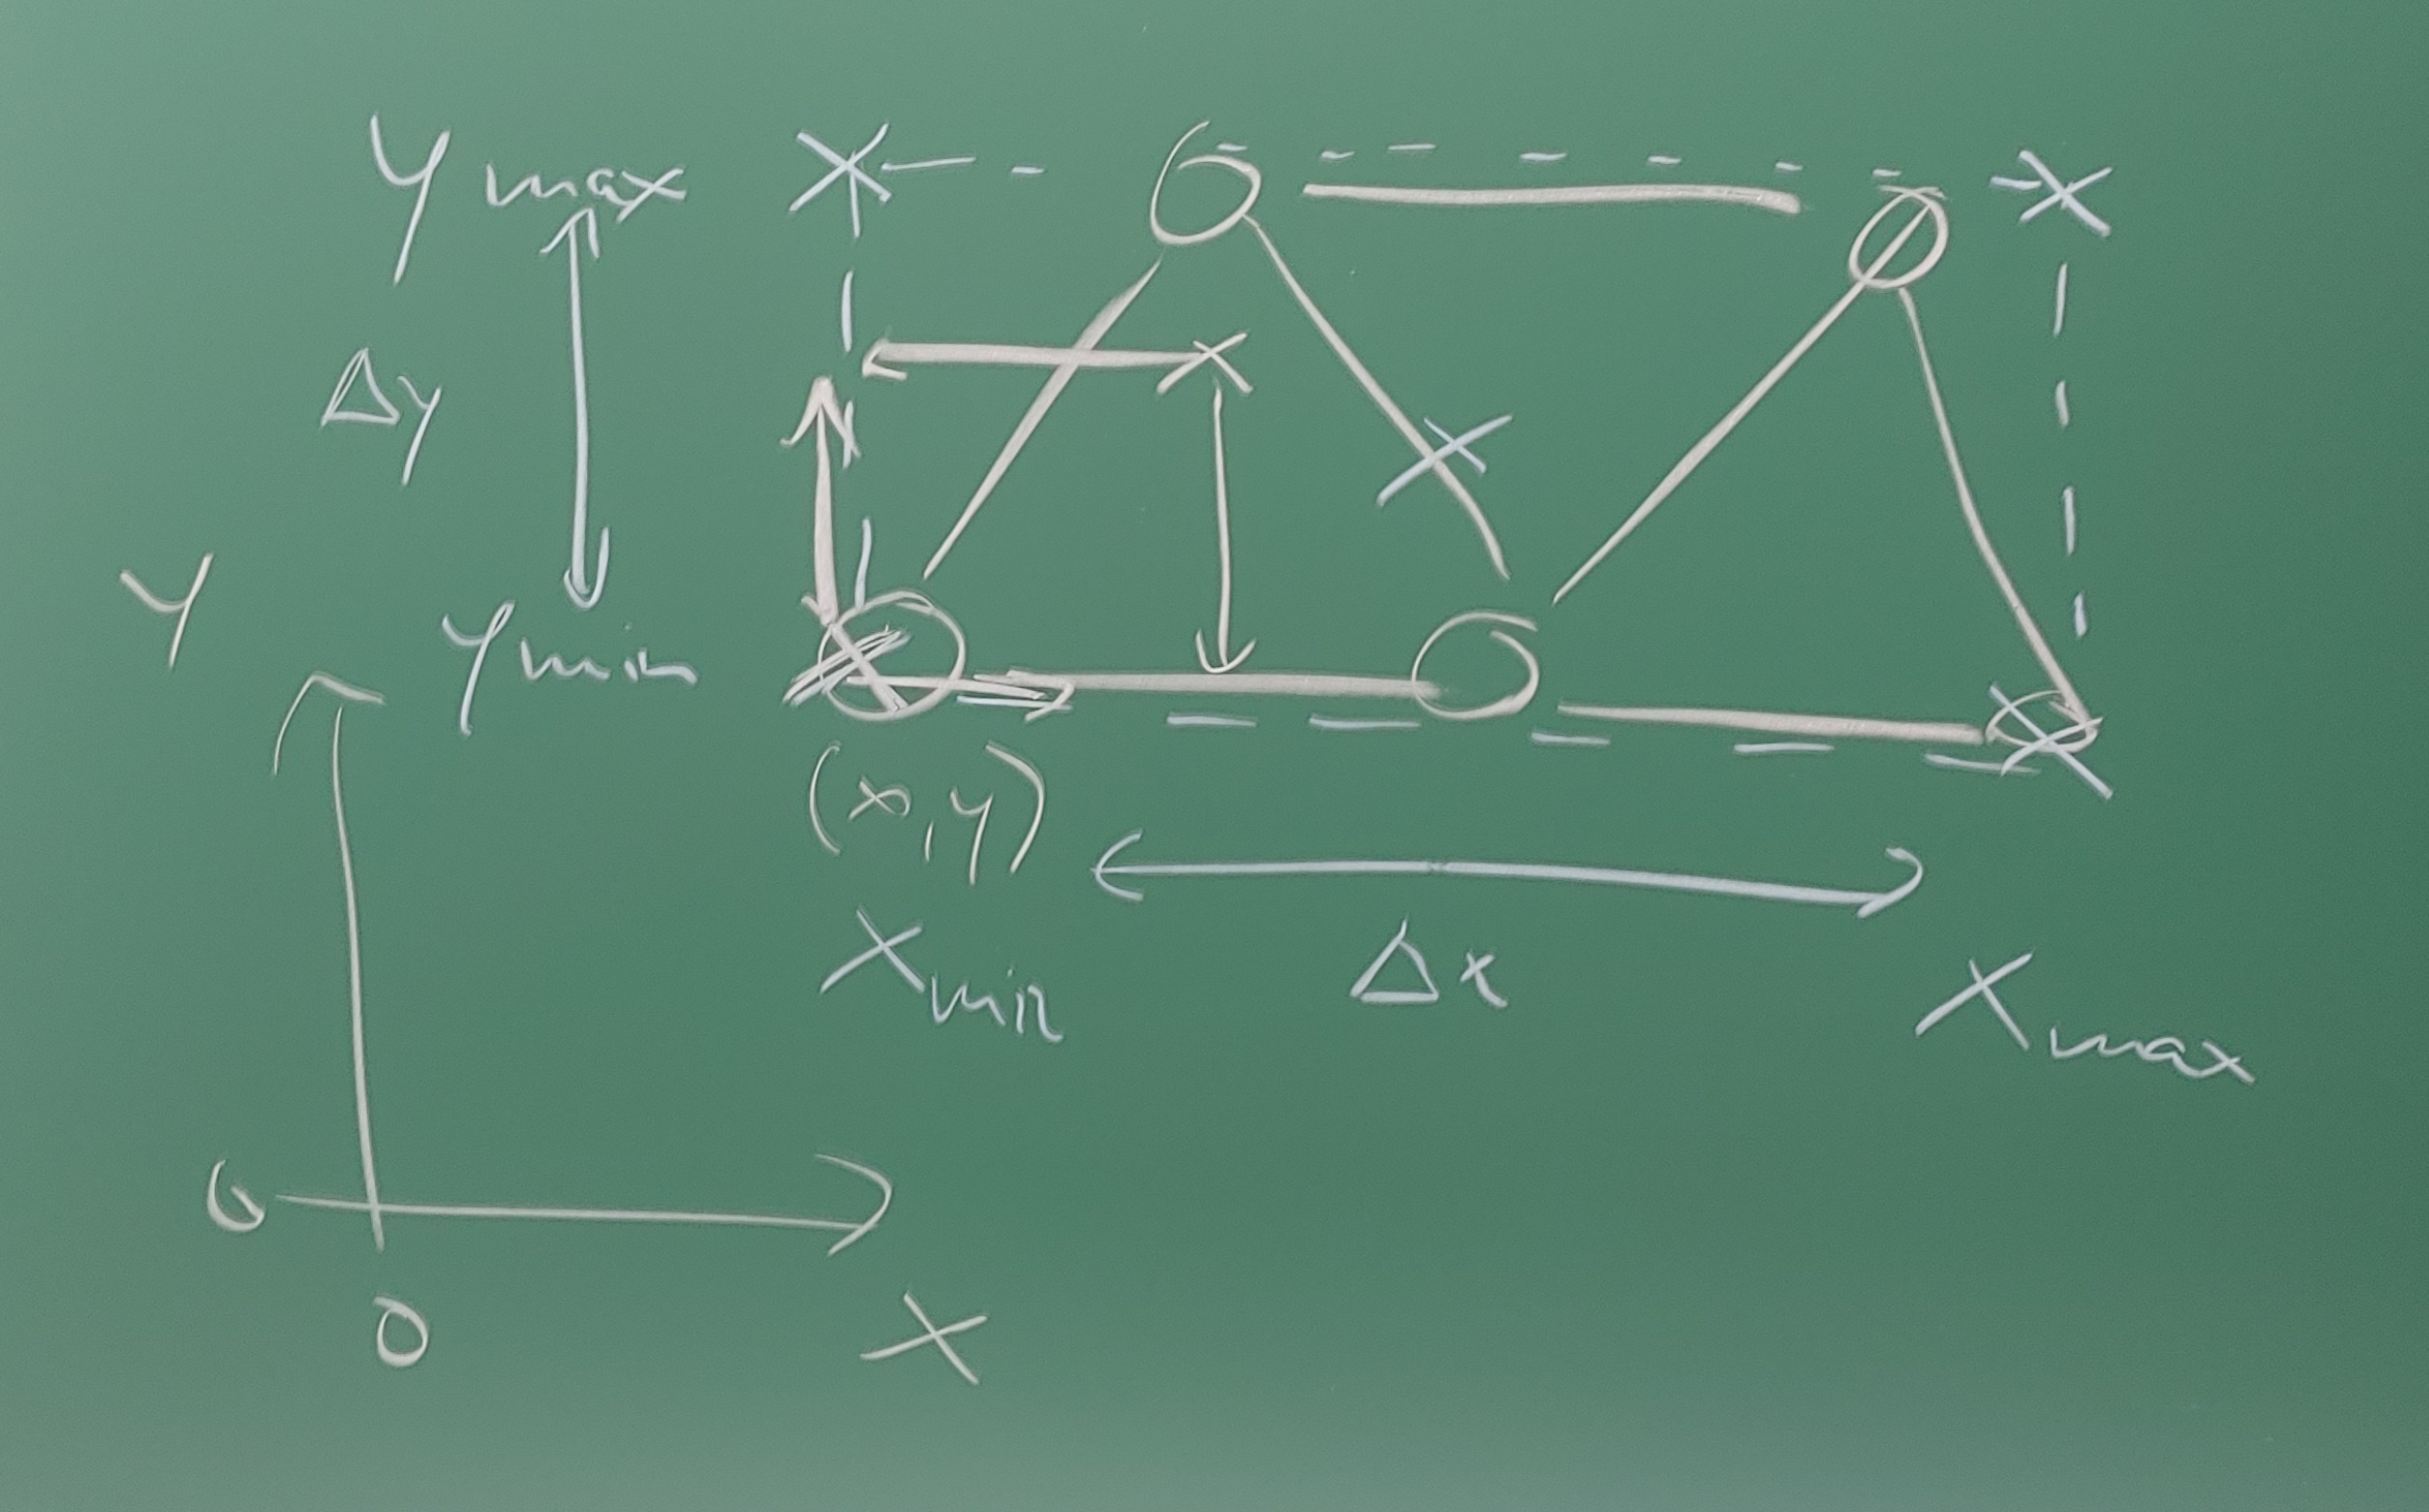 y max
Δy
y
y min
(x,y)
x min
Δx
x max
0
0
x